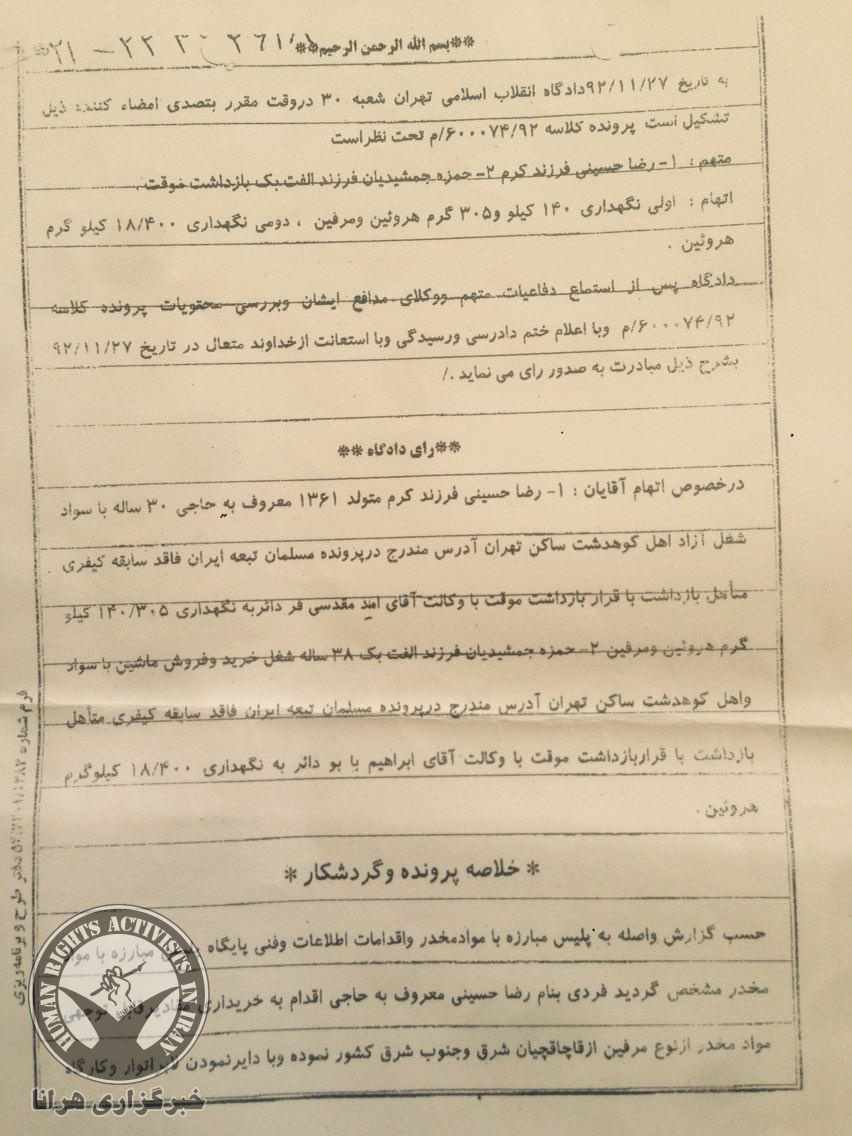 **بسم الله الرحمن الرحيم**
به تاریخ ۹۲/۱۱/۲۷دادگاه انقلاب اسلامی تهران شعبه ۳۰ دروقت مقرر بتصدی امضاء کننده ذیل
تشکیل است پرونده کلاسه ۶۰۰۰۷۴/۹۲/م تحت نظراست
متهم : ۱- رضا حسینی فرزند کرم ۲- حمزه جمشیدیان فرزند الفت بک بازداشت موقت .
اتهام : اولی نگهداری ۱۴۰ کیلو و۳۰۵ گرم هروئین ومرفین ، دومی نگهداری ۱۸/۴۰۰ کیلو گرم
هروئین .
دادگاه پس از استماع دفاعیات متهم ووکلای مدافع ایشان وبررسی محتویات پرونده کلاسه
۶۰۰۰۷۴/۹۲/م وبا اعلام ختم دادرسی ورسیدگی وبا استعانت ازخداوند متعال در تاریخ ۹۲/۱۱/۲۷
بشرح ذیل مبادرت به صدور رای می نماید ./
**رای دادگاه **
درخصوص اتهام آقایان : ۱- رضا حسینی فرزند کرم متولد ۱۳۶۱ معروف به حاجی ۳۰ ساله با سواد
شغل آزاد اهل کوهدشت ساکن تهران آدرس مندرج درپرونده مسلمان تبعه ایران فاقد سابقه کیفری
متأهل بازداشت با قرار بازداشت موقت با وکالت آقای امید مقدسی فر دائربه نگهداری ۱۴۰/۳۰۵ کیلو
گرم هروئین ومرفین ۲- حمزه جمشیدیان فرزند الفت بک ۳۸ ساله شغل خرید وفروش ماشین با سواد
واهل کوهدشت ساکن تهران آدرس مندرج درپرونده مسلمان تبعه ایران فاقد سابقه کیفری متأهل
بازداشت با قراربازداشت موقت با وکالت آقای ابراهیم با بو دائر به نگهداری ۱۸/۴۰۰ کیلوگرم
هروئین .
* خلاصه پرونده وگردشکار *
حسب گزارش واصله به پلیس مبارزه با موادمخدر واقدامات اطلاعات وفنی پایگاه مبارزه با مواد
مخدر مشخص گردید فردی بنام رضا حسینی معروف به حاجی اقدام به خریداری مقادیرقابل توجهی
مواد مخدر ازنوع مرفین ازقاچاقچیان شرق وجنوب شرق کشور نموده وبا دایرنمودن لابراتوار وکارگاه
فرم شماره
دفتر طرح و برنامه ریزی
HUMAN RIGHTS ACTIVISTS IN IRAN
خبرگزاری هرانا